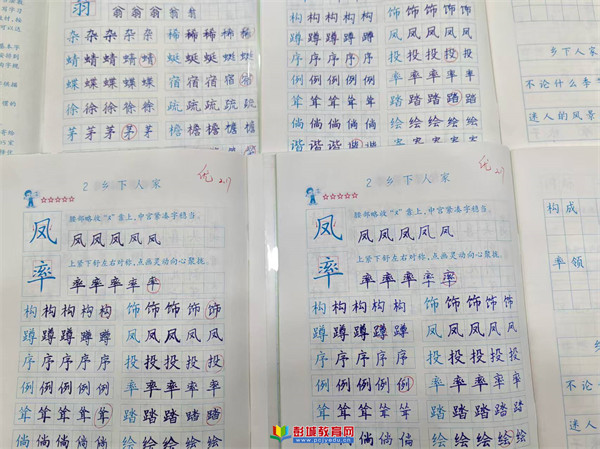 翁 翁 翁 翁 翁 翁
杂 杂 杂 杂 杂 稀 稀 稀 稀 稀
蜻 蜻 蜻 蜻 蜻 蜓 蜓 蜓 蜓 蜓
蝶 蝶 蝶 蝶 蝶 宿 宿 宿 宿 宿
徐 徐 徐 徐 徐 疏 疏 疏 疏 疏
茅 茅 茅 茅 茅 檐 檐 檐 檐 檐
构 构 构 构 构 饰 饰 饰 饰 饰
蹲 蹲 蹲 蹲 蹲 凤 凤 凤 凤 凤
序 序 序 序 序 投 投 投 投 投
例 例 例 例 例 率 率 率 率 率
耸 耸 耸 耸 耸 踏 踏 踏 踏 踏
倘 倘 倘 倘 倘 绘 绘 绘 绘 绘
谐 谐 谐 谐 谐
乡下人家
不论什么季
迷人的风景
2 乡下人家
优 2.17
凤 腰部略收“x”靠上,中宫紧凑字稳当。
凤 凤 凤 凤 凤
率 上紧下舒左右对称,点画灵动向心聚拢。
率 率 率 率 率
构 构 构 构 构 饰 饰 饰 饰 饰
蹲 蹲 蹲 蹲 蹲 凤 凤 凤 凤 凤
序 序 序 序 序 投 投 投 投 投
例 例 例 例 例 率 率 率 率 率
耸 耸 耸 耸 耸 踏 踏 踏 踏 踏
倘 倘 倘 倘 倘 绘 绘 绘 绘 绘
2 乡下人家
优 2.17
凤 腰部略收“x”靠上,中宫紧凑字稳当。
凤 凤 凤 凤 凤
率 上紧下舒左右对称,点画灵动向心聚拢。
率 率 率 率 率
构 构 构 构 构 饰 饰 饰 饰 饰
蹲 蹲 蹲 蹲 蹲 凤 凤 凤 凤 凤
序 序 序 序 序 投 投 投 投 投
例 例 例 例 例 率 率 率 率 率
耸 耸 耸 耸 耸 踏 踏 踏 踏 踏
倘 倘 倘 倘 倘 绘 绘 绘 绘 绘
构成
率领
不论
迷人
彭城教育网
www.pcjyedu.cn